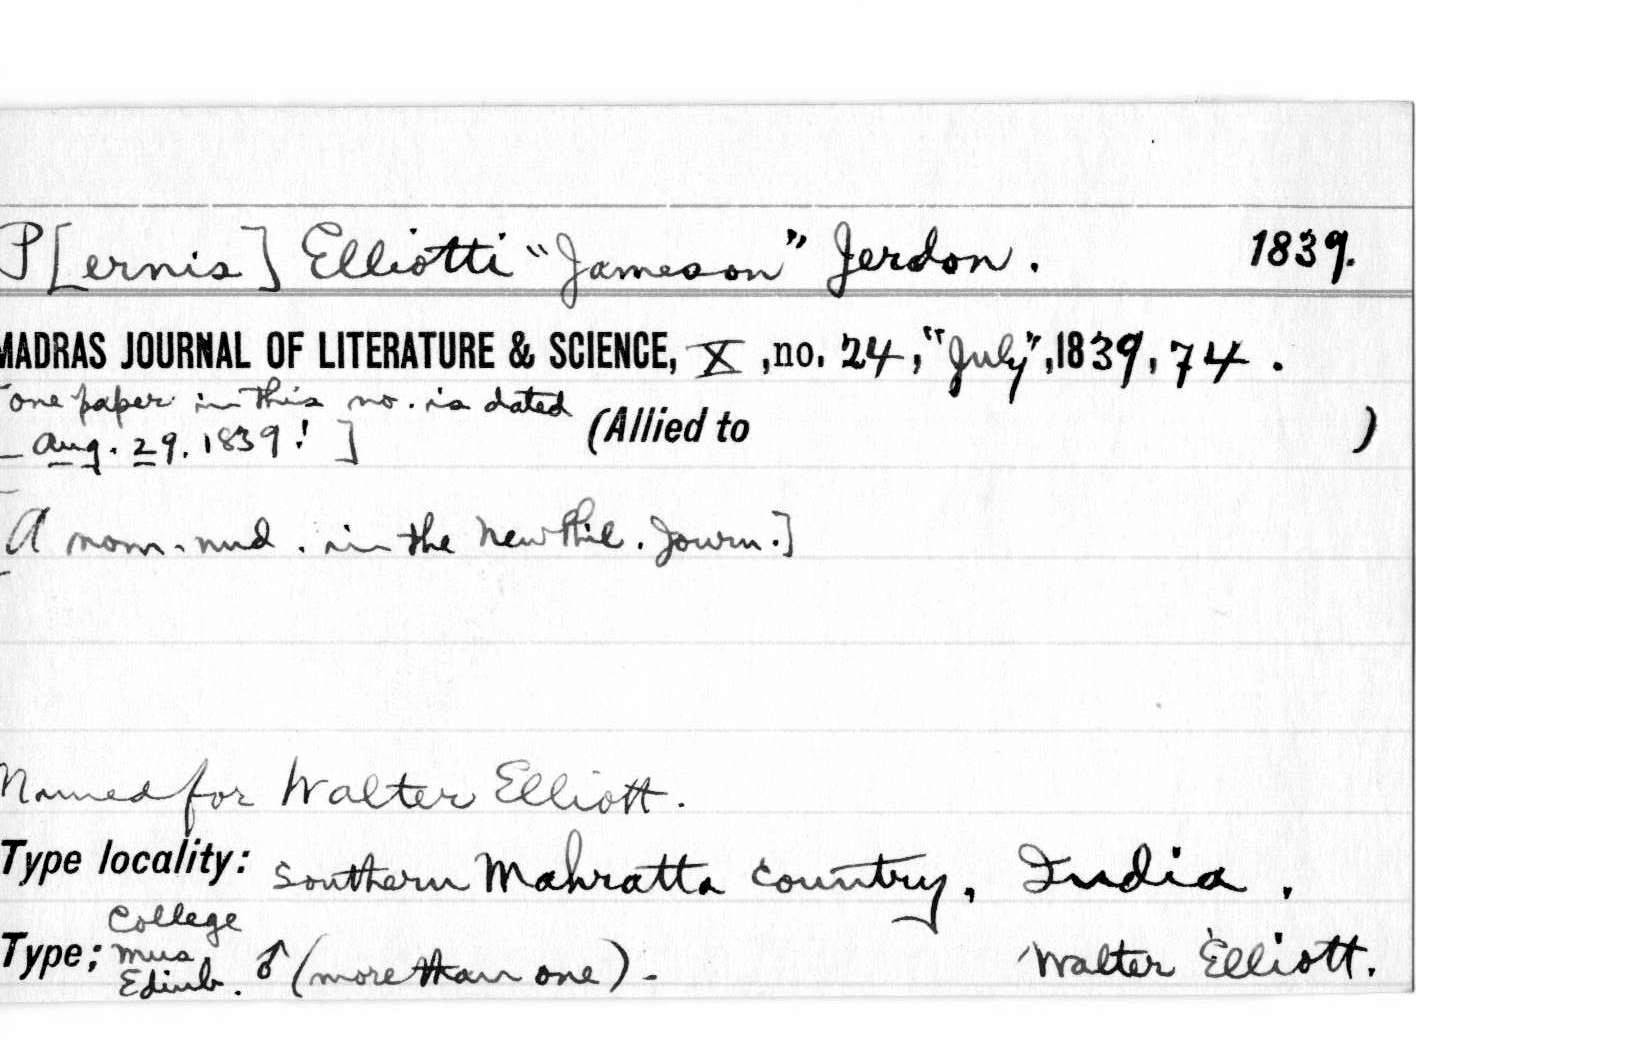 P[ernis] Elliotti "Jameson" Jerdon. 1839.
MADRAS JOURNAL OF LITERATURE & SCIENCE, X, no. 24, "July", 1839, 74.
[one paper in this no. is dated
Aug. 29. 1839! ]
(Allied to )
[A nom. nud. in the New Phil. Journ.]
Named for Walter Elliott.
Type locality: Southern Mahratta Country, India.
Type; College
Mus
Edinb. ♂ (more than one). Walter Elliott.